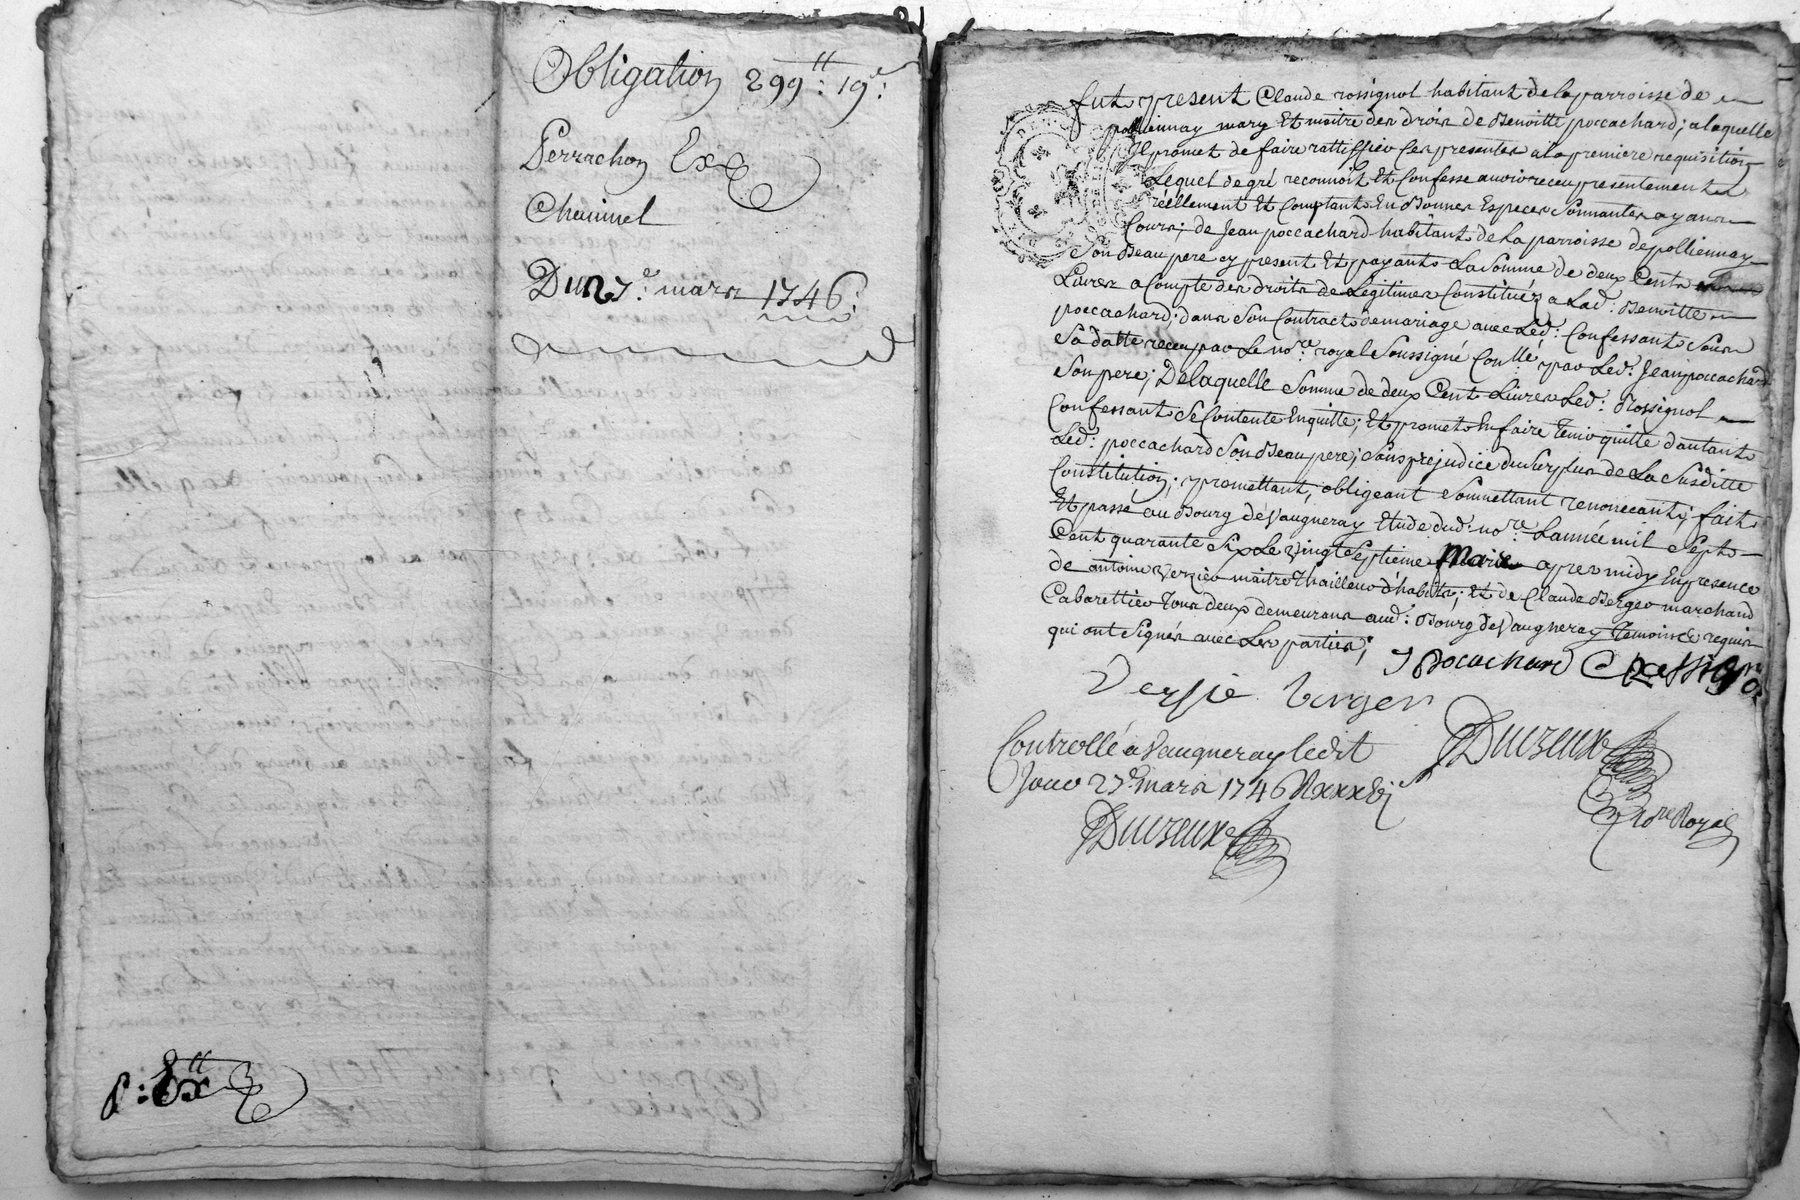 Obligation 299ᵗᵗ: 19ˢ:
Perrachon
Chauinel
Du 27ᵉ: mars 1746:
fut present Claude rossignol habitant de la parroisse de
pollionnay mary Et maitre des drois de Benoitte poccachard; a laquelle
Jl promet de faire rattiffier Ces presentes a la premiere requisition
Lequel de gré reconnoit Et Confesse auoir receu presentement
reellement Et Comptant En Bonnes Especes Sonnantes ayans
Cours; de Jean poccachard habitant de la parroisse de polliennay
Son Beau pere cy present Et payant La Somme de deux Cents
Liures a Compte des droits de Legitimes Constitués a Lad: Benoitte
poccachard; dans Son Contract de mariage auec Led: Confessant Sous
Sa datte receu par Le noʳᵉ royal Soussigné Conˡˡᵉ par Led: Jean poccachard
Son pere; De laquelle Somme de deux Cent Liures Led: Rossignol
Confessant Se Contente En quitte; Et promet En faire tenir quitte d'autant
Led: poccachard Son Beau pere; Sans prejudice du Surplus de La Susditte
Constitution; promettant, obligeant Soumettant renonceant; fait
Et passé au Bourg de Vaugneray Etude dud: noʳᵉ L'année mil Sept
Cent quarante Six Le Vingt Septieme Mars apres midy En presence
de antoine Verzier maitre thailleur d'habits; Et de Claude Berger marchand
Cabarettier tous deux demeurans aud: Bourg de Vaugneray temoins requis
qui ont Signés auec Les parties;
J Pocachard C Rossignol
Versie berger
Controllé a Vaugneray ledit
Jour 27ᵉ mars 1746
Duizeux
Noʳᵉ Royal
Duizeux